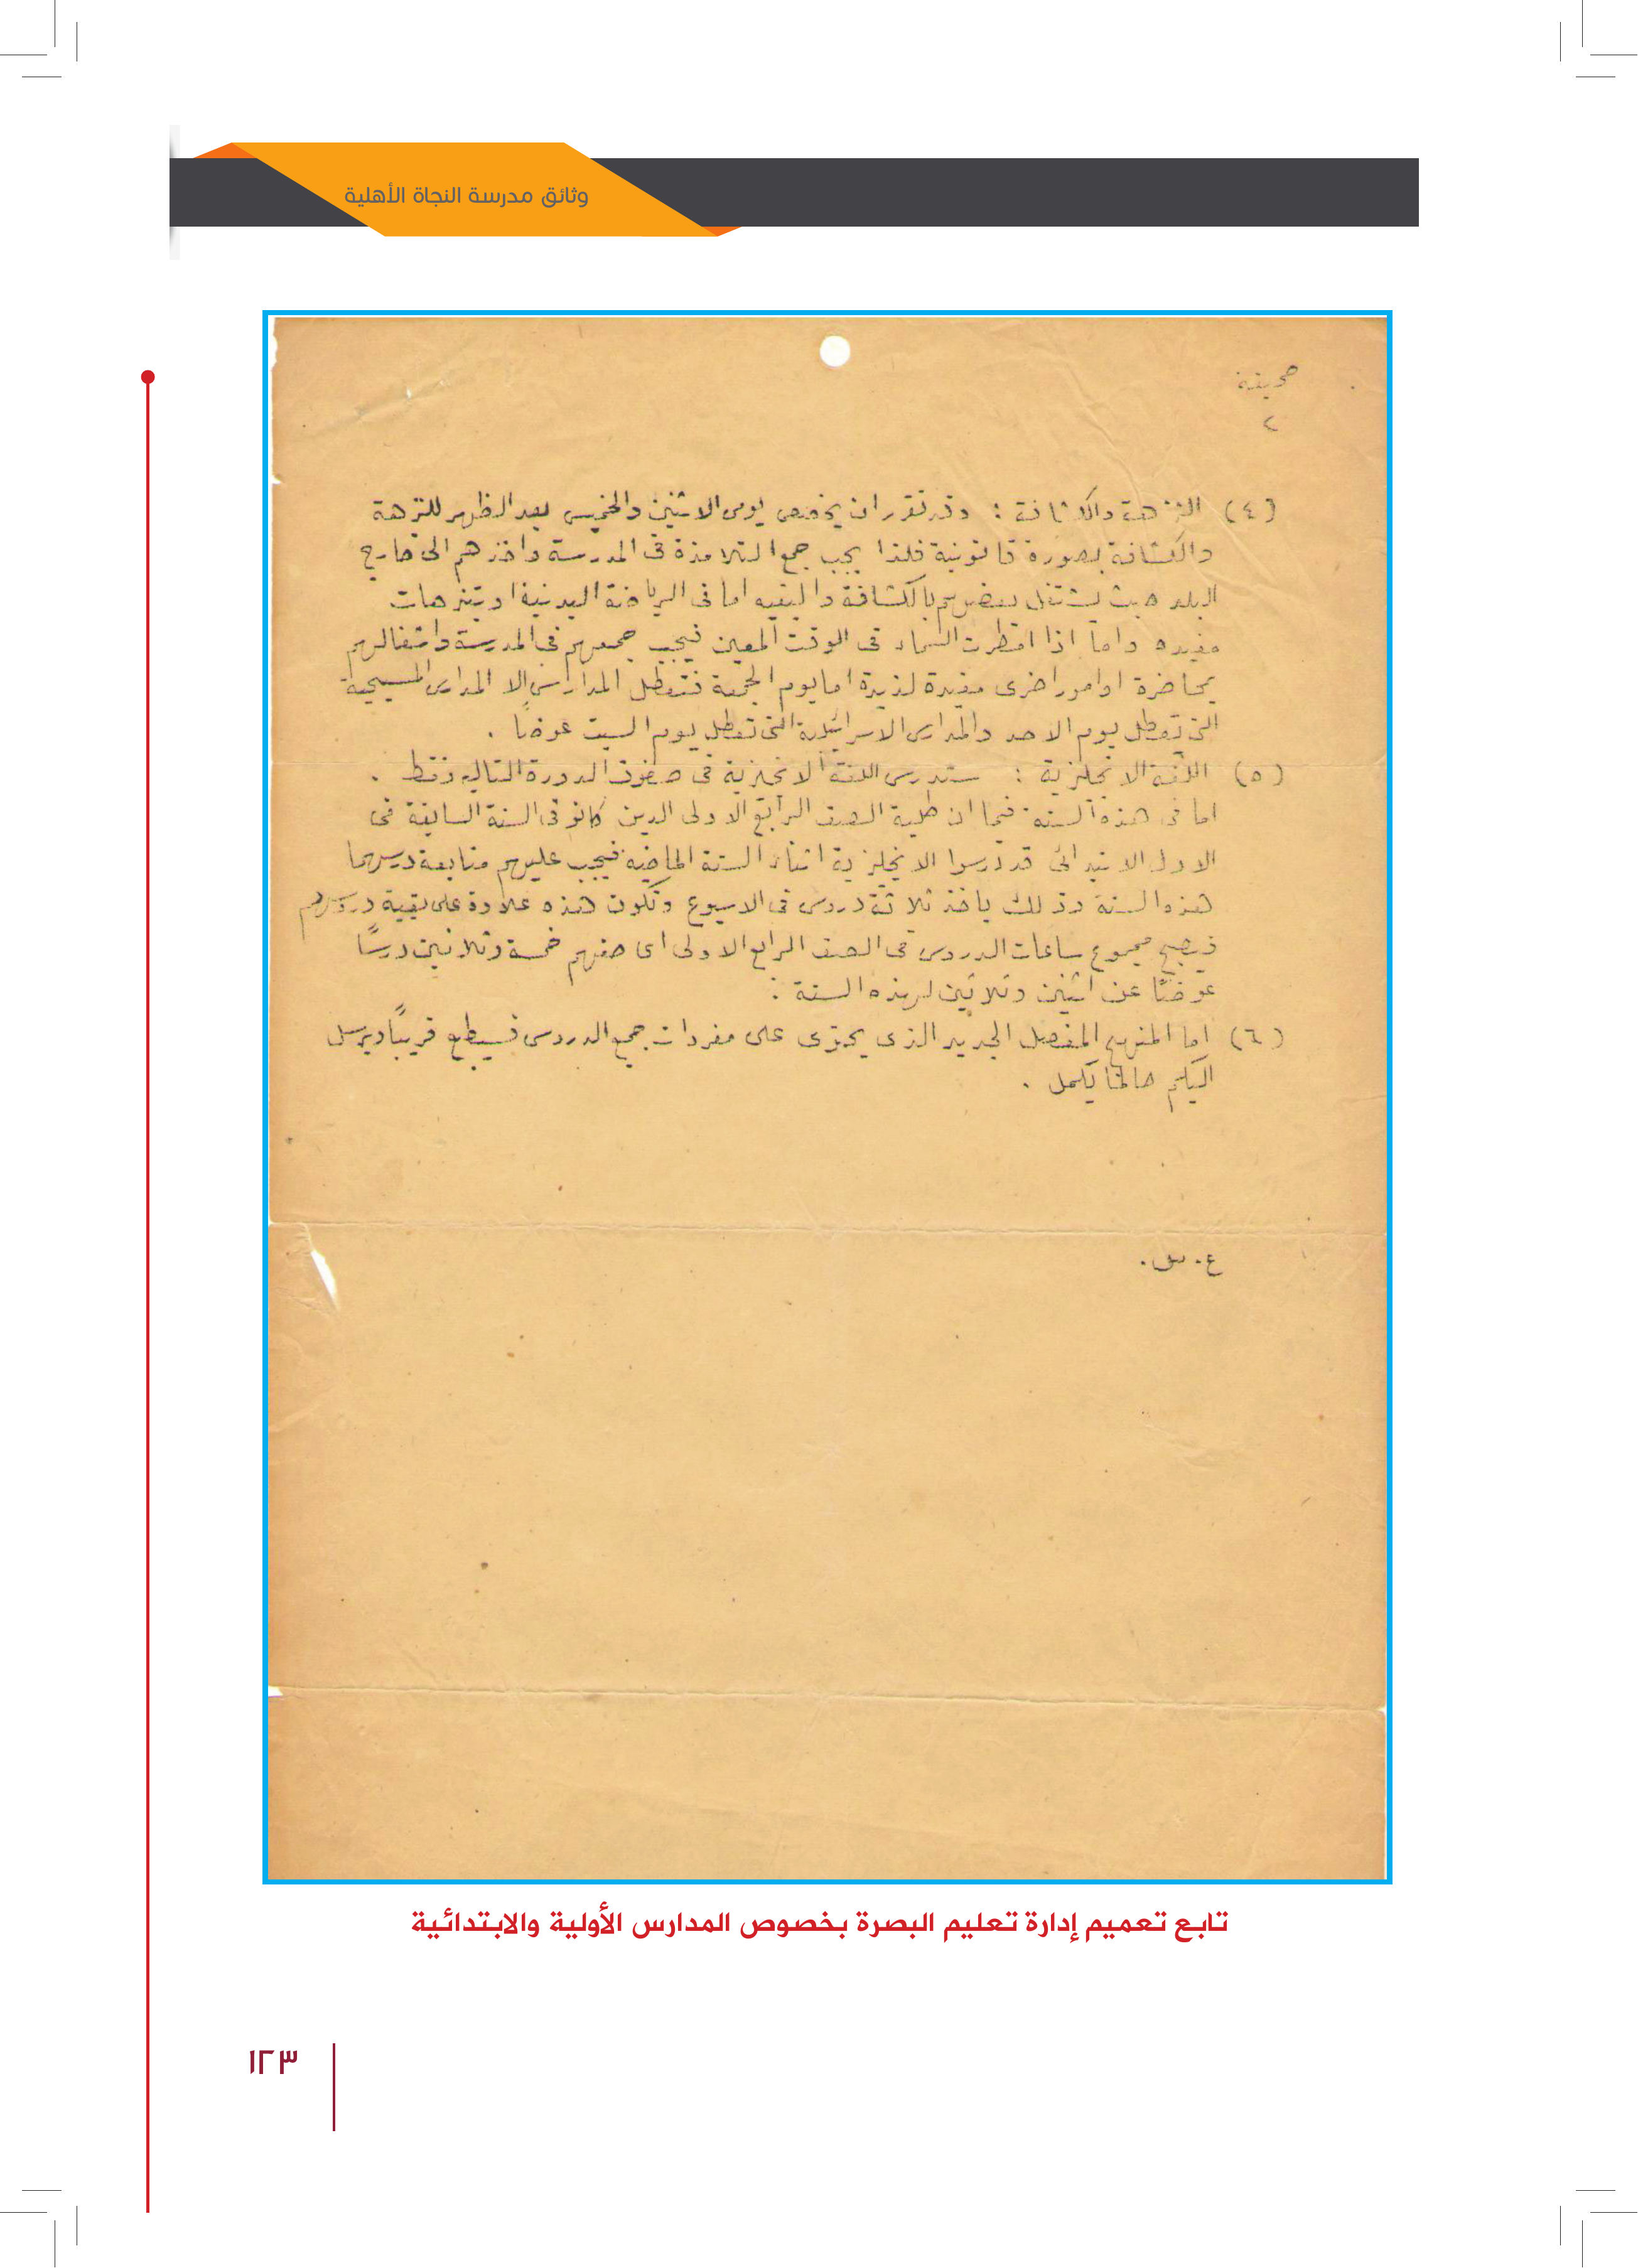 وثائق مدرسة النجاة الأهلية
صحيفة
٢
(٤) النزهة والكشافة : وقد تقرر ان يخصص يومى الاثنين والخميس بعد الظهر للنزهة
والكشافة بصورة قانونية فلذا يجب جمع التلامذة فى المدرسة واخذهم الى خارج
البلد حيث يشتغل بعضهم بالكشافة والبقيه اما فى الرياضة البدنية او بتنزهات
مفيده واما اذا امطرت السماء فى الوقت المعين فيجب جمعهم فى المدرسة واشغالهم
بمحاضرة او امور اخرى مفيدة لذيذة اما يوم الجمعة فتعطل المدارس الا المدارس المسيحية
التى تعطل يوم الاحد والمدارس الاسرائيلية التى تعطل يوم السبت عوضاً .
(٥) اللغة الانجليزية : ستدرس اللغة الانجليزية فى صفوف الدورة التاليه فقط .
اما فى هذه السنة فبما ان طلبة الصف الرابع الاولى الذين كانو فى السنة السابقة فى
الاول الابتدائى قد درسوا الانجليزية اثناء السنة الماضية فيجب عليهم متابعة درسها
هذه السنة وذلك باخذ ثلاثة دروس فى الاسبوع وتكون هذه علاوة على بقية دروسهم
فيصبح مجموع ساعات الدروس فى الصف الرابع الاولى اى صفهم خمسة وثلاثين درسًا
عوضًا عن اثنين وثلاثين لهذه السنة :
(٦) اما المنهج المفصل الجديد الذى يحتوى على مفردات جمع الدروس فسيطبع قريبًا ويرسل
اليكم حالما يكمل .
ع . س .
تابع تعميم إدارة تعليم البصرة بخصوص المدارس الأولية والابتدائية
١٢٣